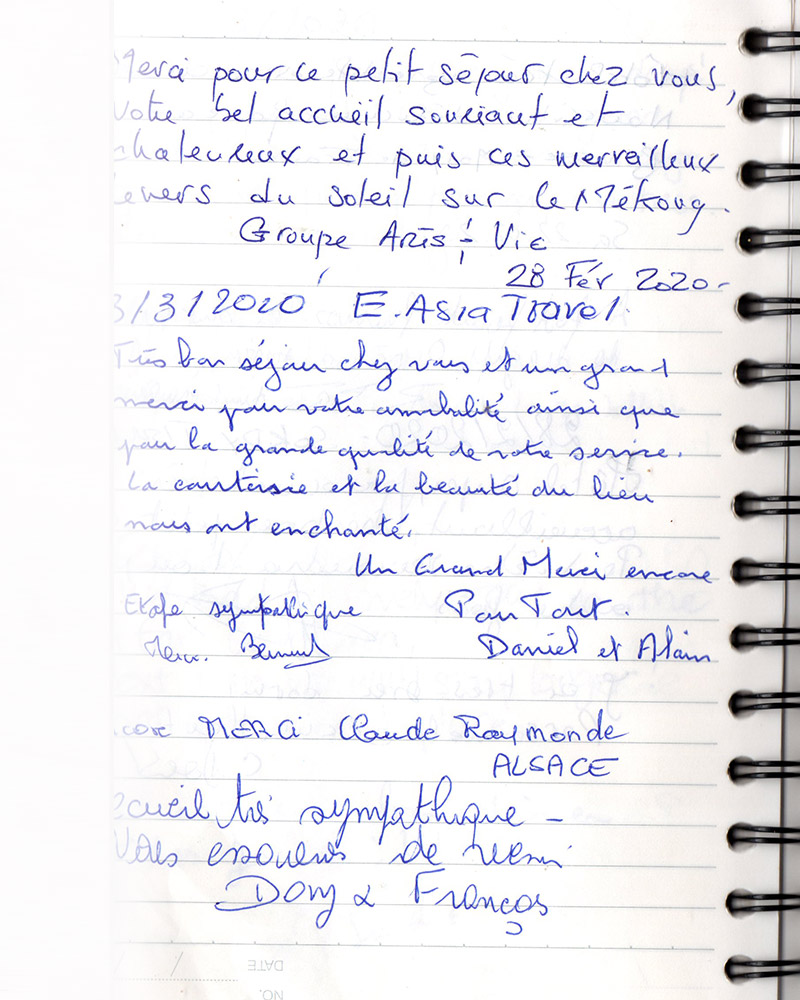 Merci pour ce petit séjour chez vous,
votre bel accueil souriant et
chaleureux et puis ces merveilleux
levers du soleil sur le Mékong.
Groupe Arts & Vie
28 Fév 2020-
3/3/2020 E. Asia Travel.
Très bon séjour chez vous et un grand
merci pour votre amabilité ainsi que
pour la grande qualité de votre service.
La courtoisie et la beauté du lieu
nous ont enchanté.
Un Grand Merci encore
Etape sympathique Pour Tout.
Merci. Daniel et Alain
MERCi Claude Raymonde
ALSACE
très sympathique -
de
& François
DATE
NO.